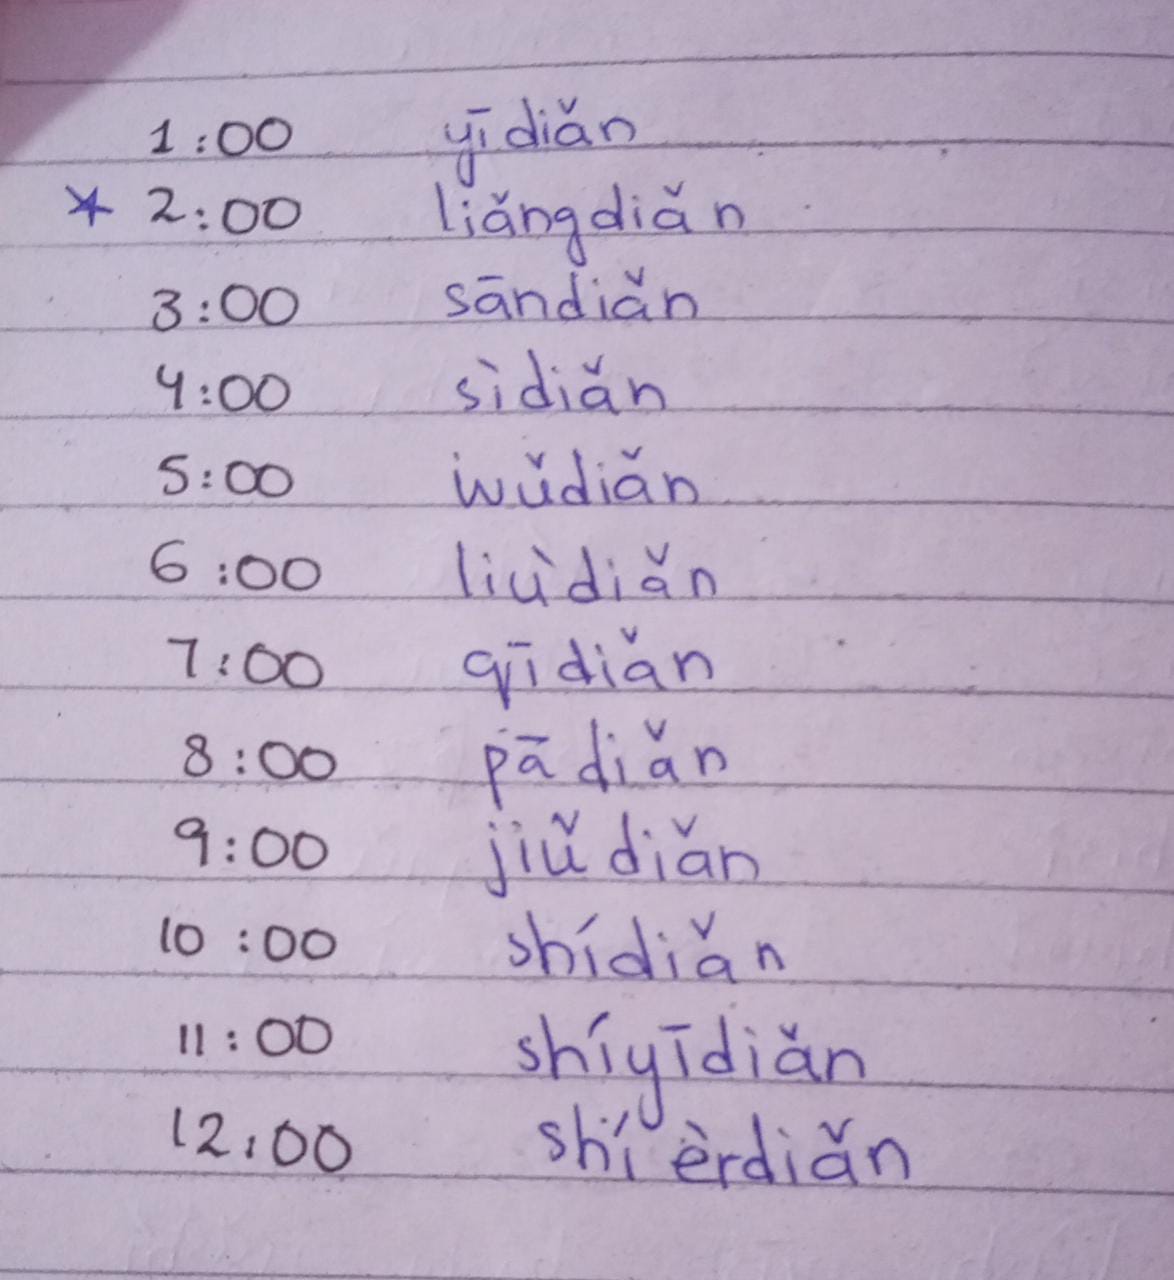 1:00 yīdiǎn
* 2:00 liǎngdiǎn
3:00 sāndiǎn
4:00 sìdiǎn
5:00 wǔdiǎn
6:00 liùdiǎn
7:00 qīdiǎn
8:00 pādiǎn
9:00 jiǔdiǎn
10:00 shídiǎn
11:00 shíyīdiǎn
12:00 shí èrdiǎn